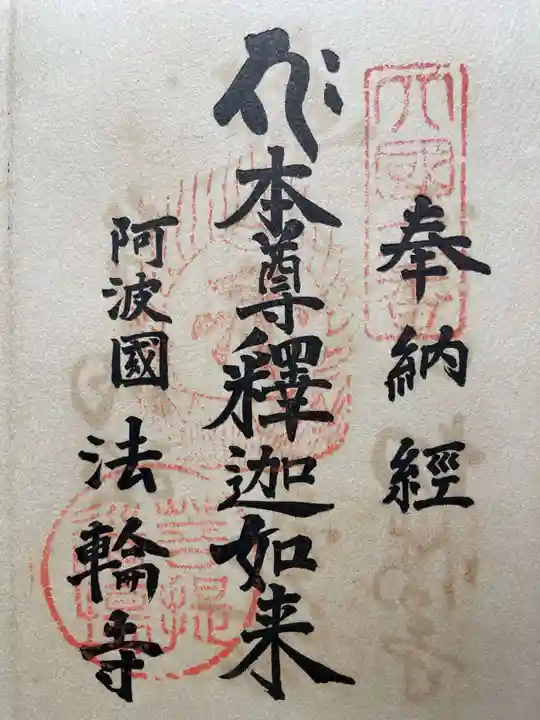 奉納經
本尊釋迦如来
阿波國 法輪寺